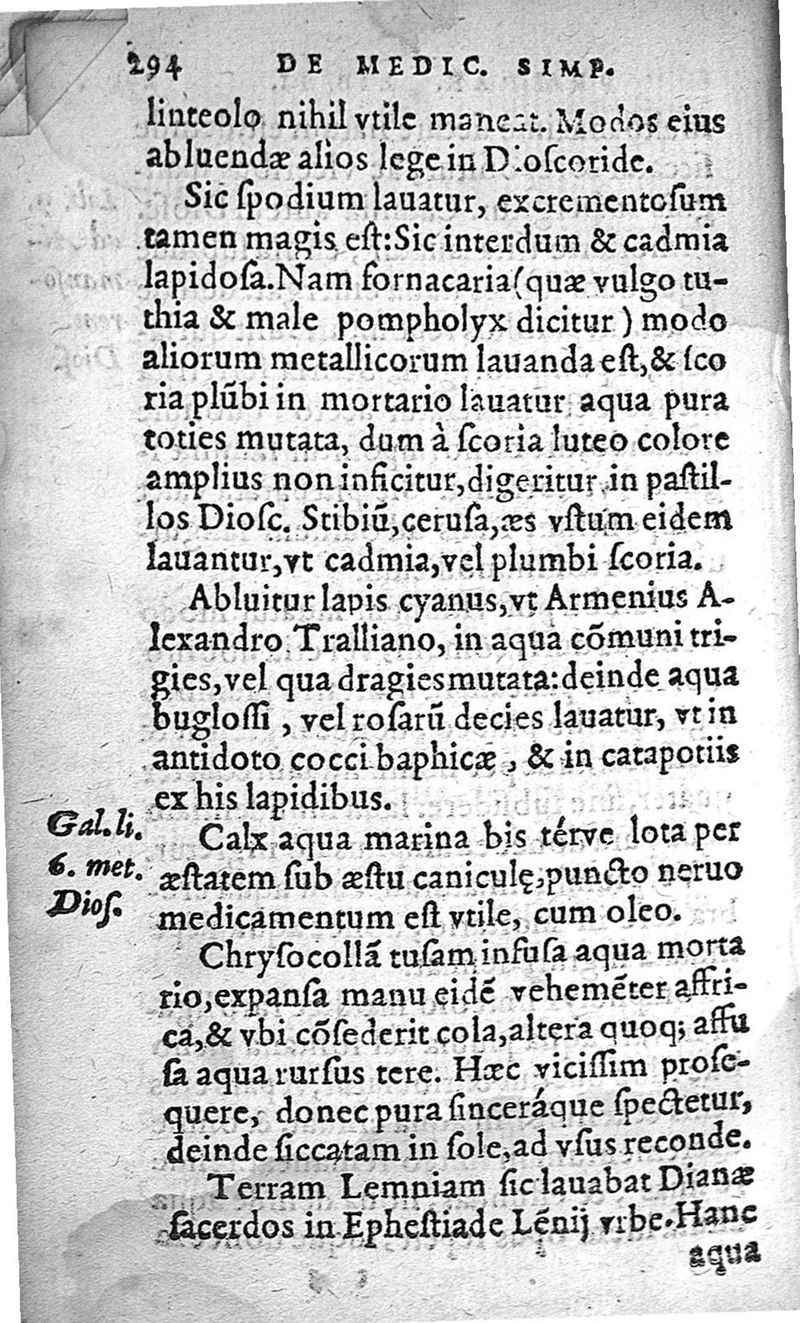 294 DE MEDIC. SIMP.
linteolo nihil vtile maneat. Modos eius
abluendæ alios lege in Dioſcoride.
Sic ſpodium lauatur, excrementoſum
tamen magis eſt: Sic interdum & cadmia
lapidoſa. Nam fornacaria (quæ vulgo tu-
thia & male pompholyx dicitur) modo
aliorum metallicorum lauanda eſt, & ſco
ria plũbi in mortario lauatur aqua pura
toties mutata, dum à ſcoria luteo colore
amplius non inficitur, digeritur in paſtil-
los Dioſc. Stibiũ, ceruſa, æs vſtum eidem
lauantur, vt cadmia, vel plumbi ſcoria.
Abluitur lapis cyanus, vt Armenius A-
lexandro Tralliano, in aqua cõmuni tri-
gies, vel qua dragies mutata: deinde aqua
bugloſſi, vel roſarũ decies lauatur, vt in
antidoto cocci baphicæ, & in catapotiis
ex his lapidibus.
Gal. li.
6. met.
Dioſ.
Calx aqua marina bis térve lota per
æſtatem ſub æſtu caniculę, puncto neruo
medicamentum eſt vtile, cum oleo.
Chryſocollã tuſam infuſa aqua morta
rio, expanſa manu eidẽ vehemẽter affri-
ca, & vbi cõſederit cola, altera quoq; affu
ſa aqua rurſus tere. Hæc viciſſim proſe-
quere, donec pura ſinceráque ſpectetur,
deinde ſiccatam in ſole, ad vſus reconde.
Terram Lemniam ſic lauabat Dianæ
ſacerdos in Epheſtiade Lẽnij vrbe. Hanc
aqua